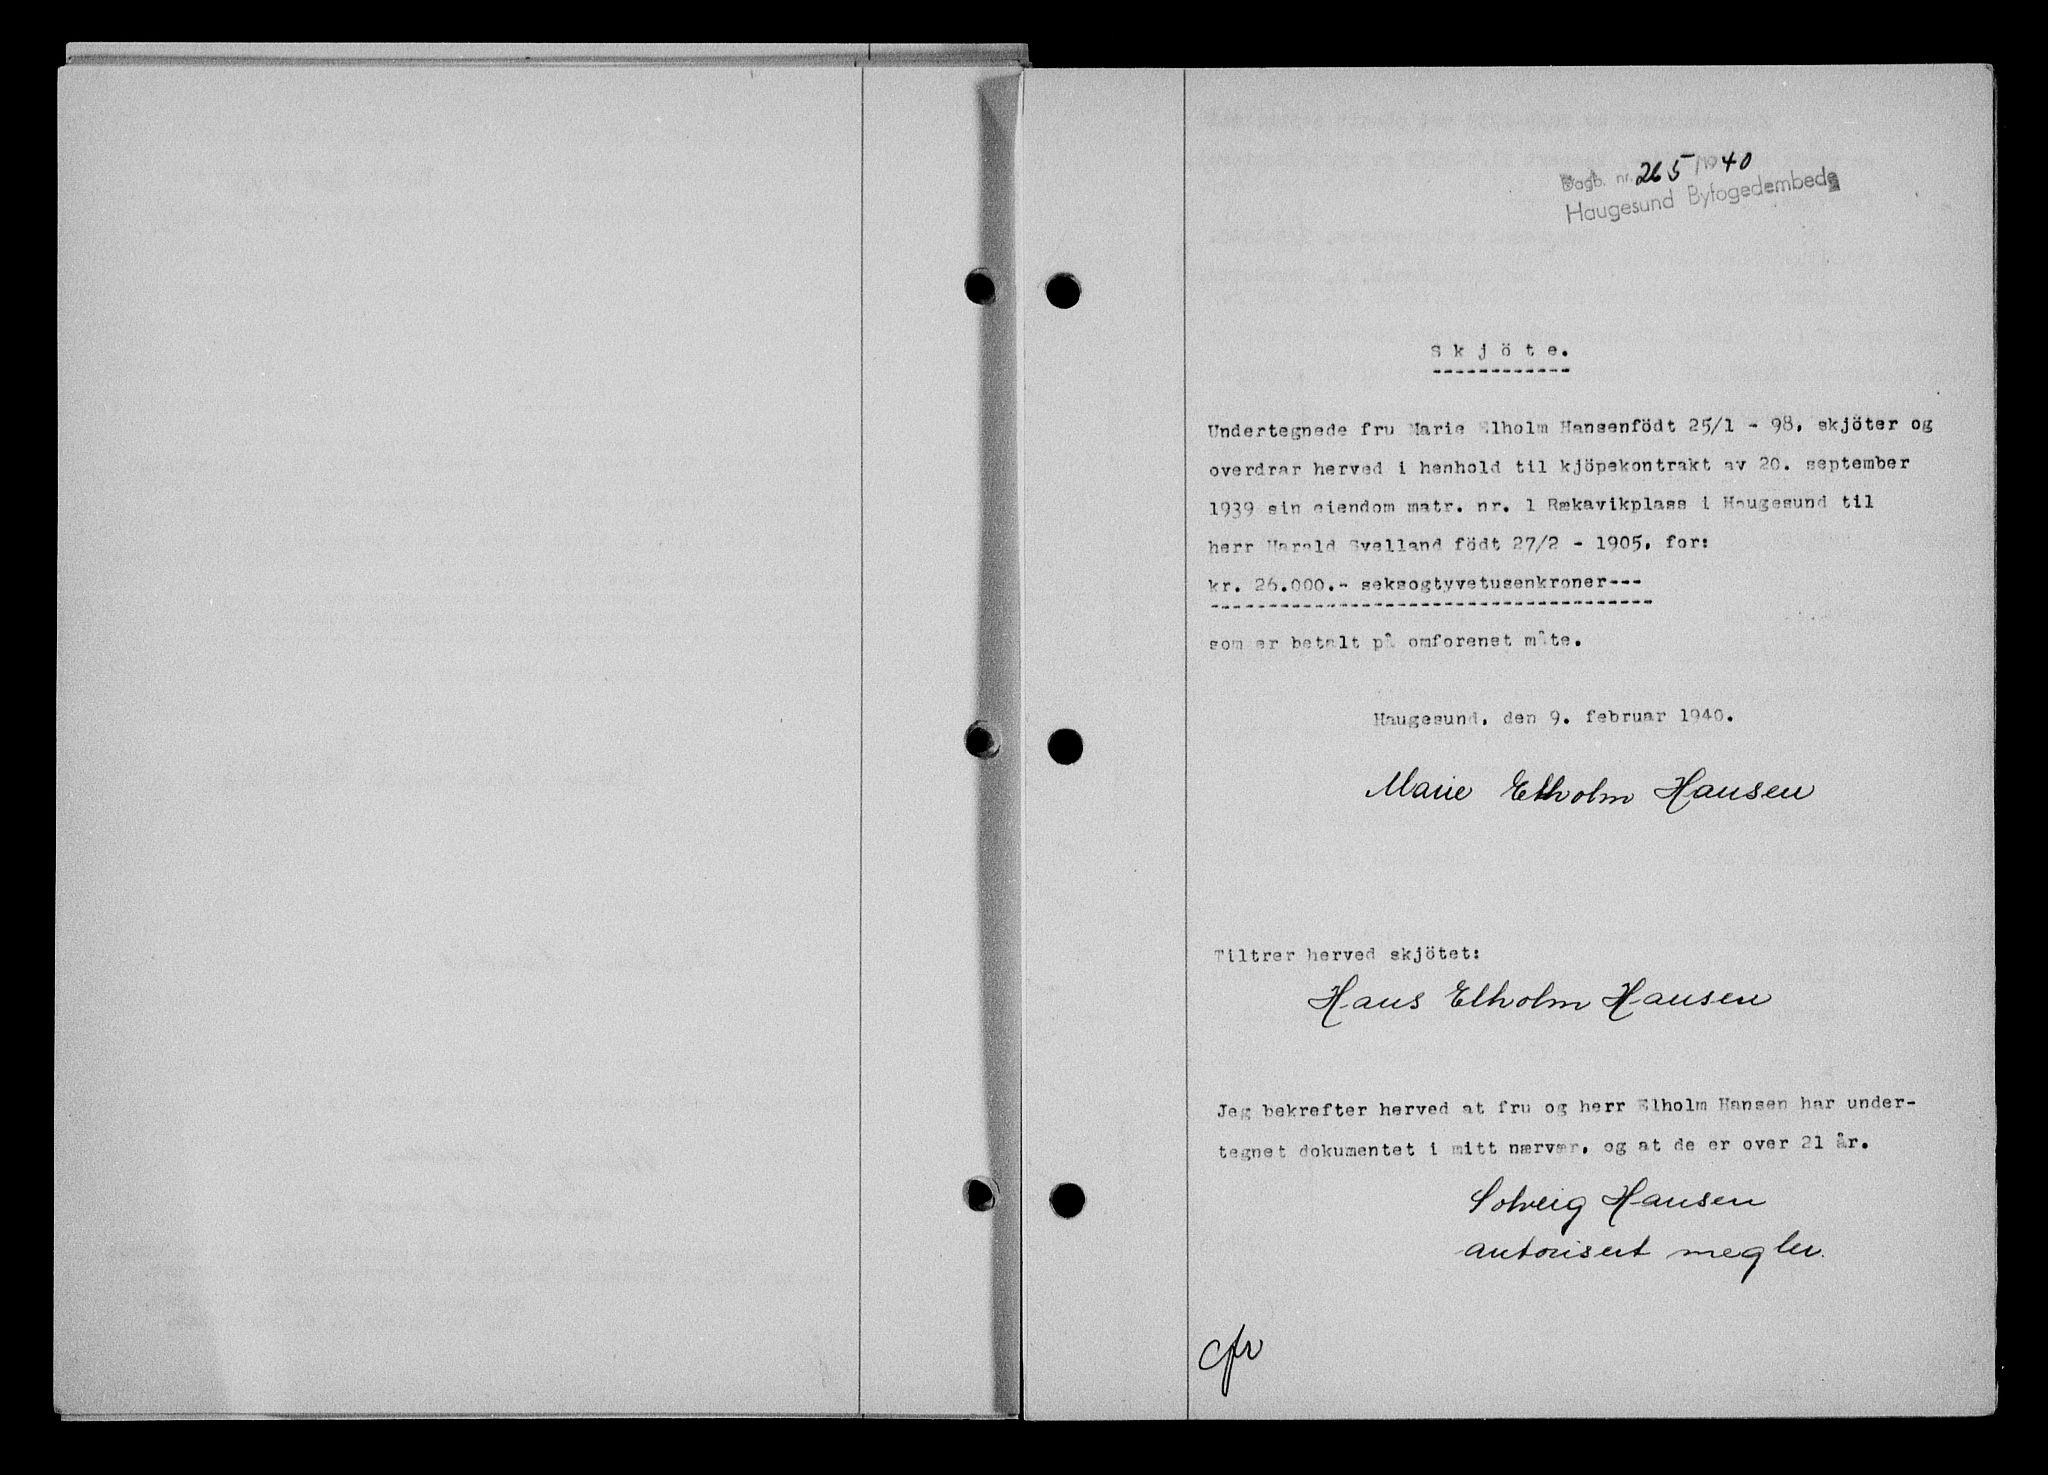 Dagb. nr. 265/1940
Haugesund Byfogedembede
Skjöte.
Undertegnede fru Marie Elholm Hansenfödt 25/1 - 98, skjöter og
overdrar herved i henhold til kjöpekontrakt av 20. september
1939 sin eiendom matr. nr. 1 Rækavikplass i Haugesund til
herr Harald Svelland födt 27/2 - 1905, for:
kr. 26.000.- seksogtyvetusenkroner---
som er betalt på omforenet måte.
Haugesund, den 9. februar 1940.
Marie Elholm Hansen
Tiltrer herved skjötet:
Hans Elholm Hansen
Jeg bekrefter herved at fru og herr Elholm Hansen har under-
tegnet dokumentet i mitt nærvær, og at de er over 21 år.
Solveig Hansen
autorisert megler.
cfr